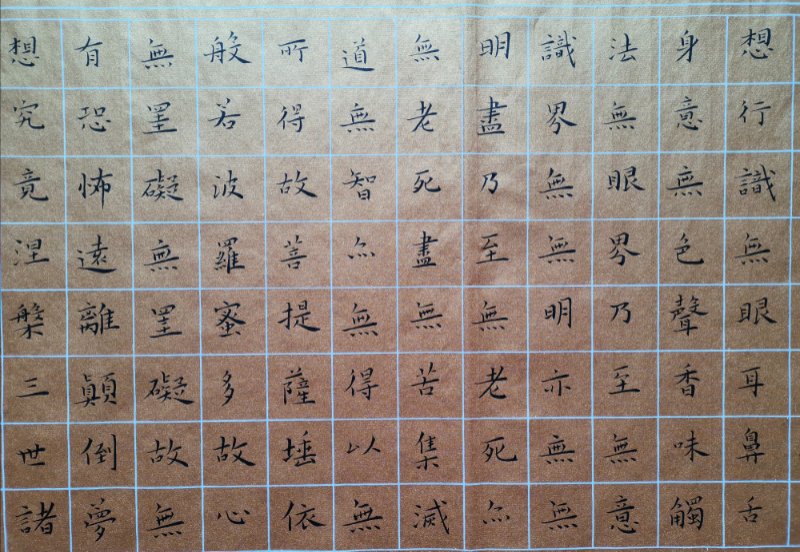 想行識無眼耳鼻舌
身意無色聲香味觸
法無眼界乃至無意
識界無無明亦無無
明盡乃至無老死亦
無老死盡無苦集滅
道無智亦無得以無
所得故菩提薩埵依
般若波羅蜜多故心
無罣礙無罣礙故無
有恐怖遠離顛倒夢
想究竟涅槃三世諸